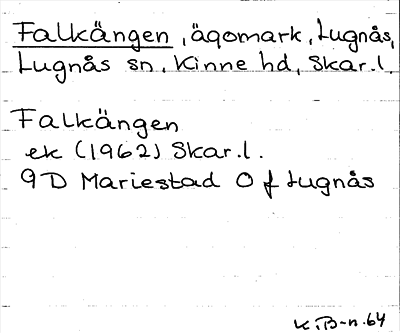 Falkängen, ägomark, Lugnås,
Lugnås sn, Kinne hd, Skar.l.
Falkängen
ek (1962) Skar.l.
9D Mariestad O f Lugnås
K.B-n.64